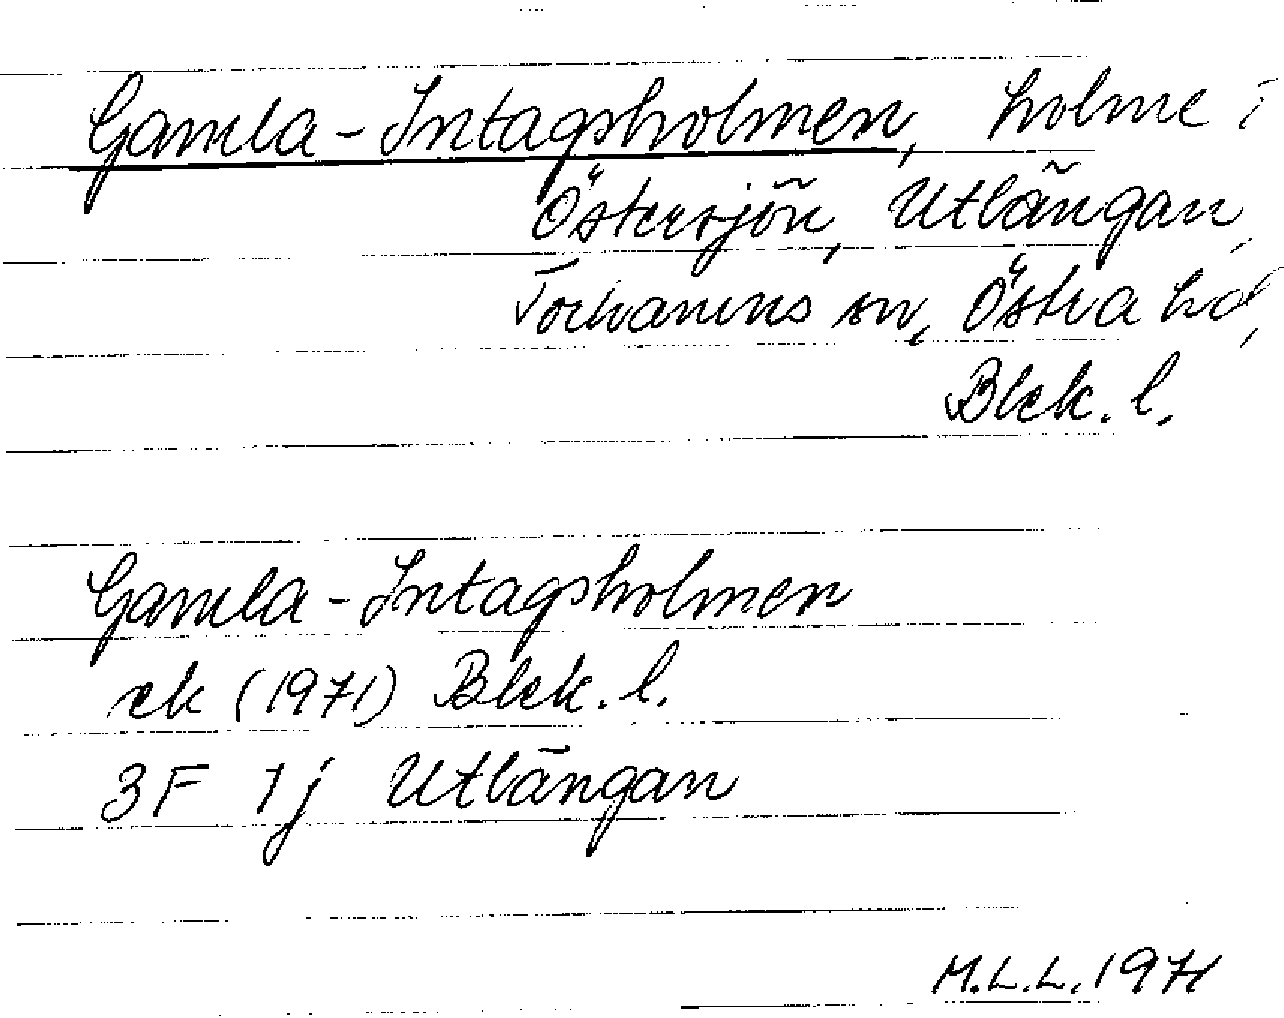 Gamla-Intagsholmen, holme i
Östersjön, Utlängan,
Torhamns sn, Östra hd,
Blek. l.
Gamla-Intagsholmen
ek (1971) Blek. l.
3F 1j Utlängan
M.L.L. 1971